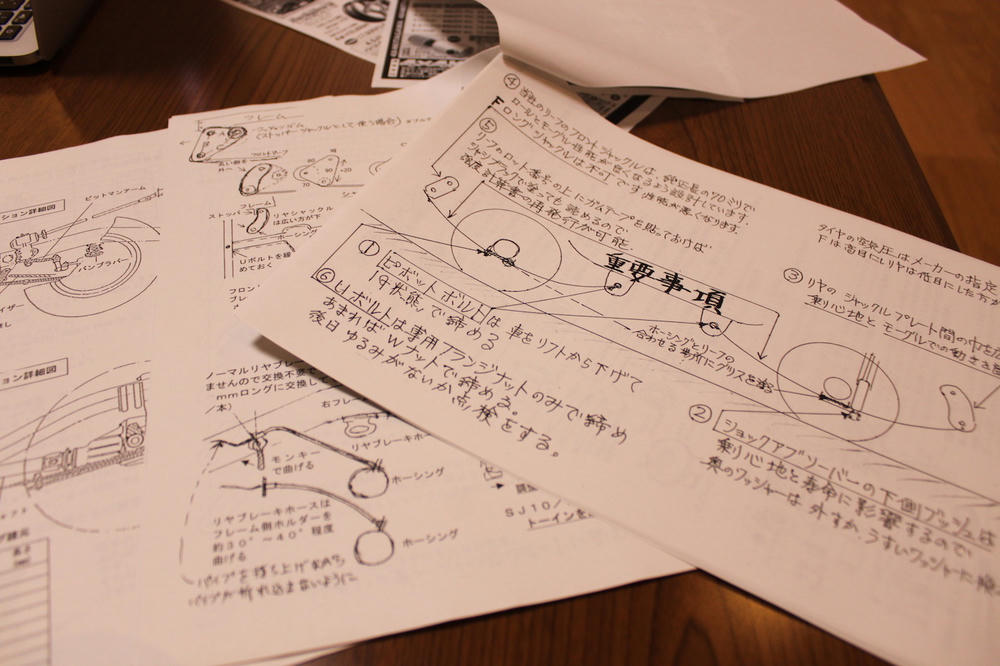 ④当社のリーフのフロントシャックルは、純正長の70ミリで
ロールとモーグル性能が良くなるよう設計しています。
ロングシャックルは不可です性能が悪くなります。
F
⑤リーフのロット番号の上にガムテープを貼っておけば
シャシブラックで塗っても読めるので
強度計算書の再発行が可能
重要事項
①ピボットボルトは車をリフトから下げて
1G状態で締める
⑥Uボルトは専用フランジナットのみで締め
あまればWナットで締める。
後日ゆるみがないか点検をする。
ホーシングとリーフの
合わせる場所にグリスを塗る
タイヤの空気圧はメーカーの指定
Fは高目にリヤは低目にした方が
③リヤのシャックルプレート間の中を
乗り心地とモーグルでの動き
②ショックアブソーバーの下側ブッシュは
乗り心地と寿命に影響するので
奥のワッシャーは外すか、うすいワッシャーに
フレーム
(ストッパーシャックルとして使う場合)
広い側を
外へ
フレーム
ストッパー
リヤシャックル
は広い方が下
ホーシング
Uボルトを緩
めておく
フロン
ブレー
ション詳細図
ピットマンアーム
バンプラバー
イザー
ション詳細図
ノーマルリヤブレー
ませんので交換不要で
mmロングに交換して
/本)
右フレー
リヤブレーキホー
モンキー
で曲げる
ホーシング
リヤブレーキホースは
フレーム側ホルダーを
約30°~40°程度
曲げる
ホーシング
SJ10/
トーインを
パイプを持ち上げながら
パイプが折れ込まないように